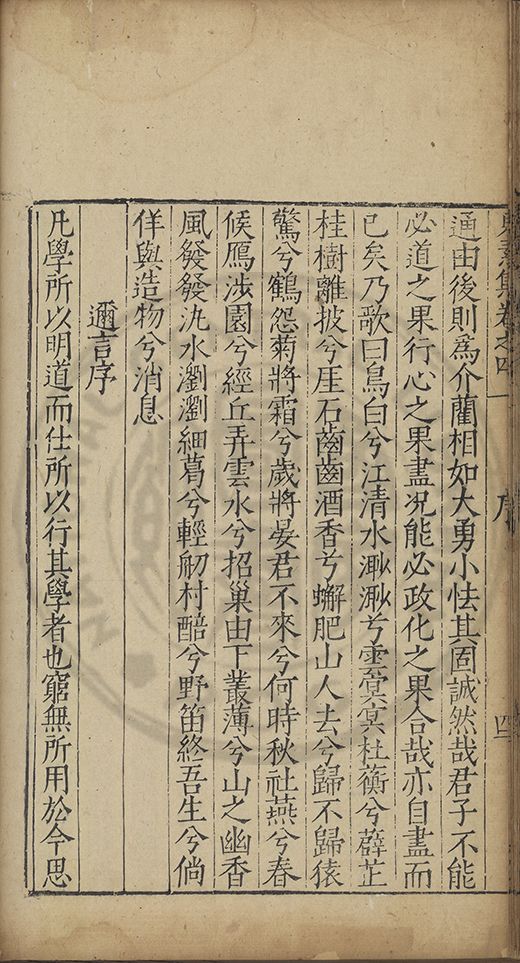 集卷之四 序 四
通由後則為介藺相如大勇小怯其固誠然哉君子不能
必道之果行心之果盡況能必政化之果合哉亦自盡而
已矣乃歌曰鳥白兮江清水渺渺兮雲冥冥杜蘅兮薜芷
桂樹離披兮厓石齒齒酒香兮蠏肥山人去兮歸不歸猿
驚兮鶴怨菊將霜兮歲將晏君不來兮何時秋社燕兮春
候鴈涉園兮經丘弄雲水兮招巢由下叢薄兮山之幽香
風發發氿水瀏瀏細葛兮輕舠村醅兮野笛終吾生兮倘
佯與造物兮消息
邇言序
凡學所以明道而仕所以行其學者也窮無所用於今思